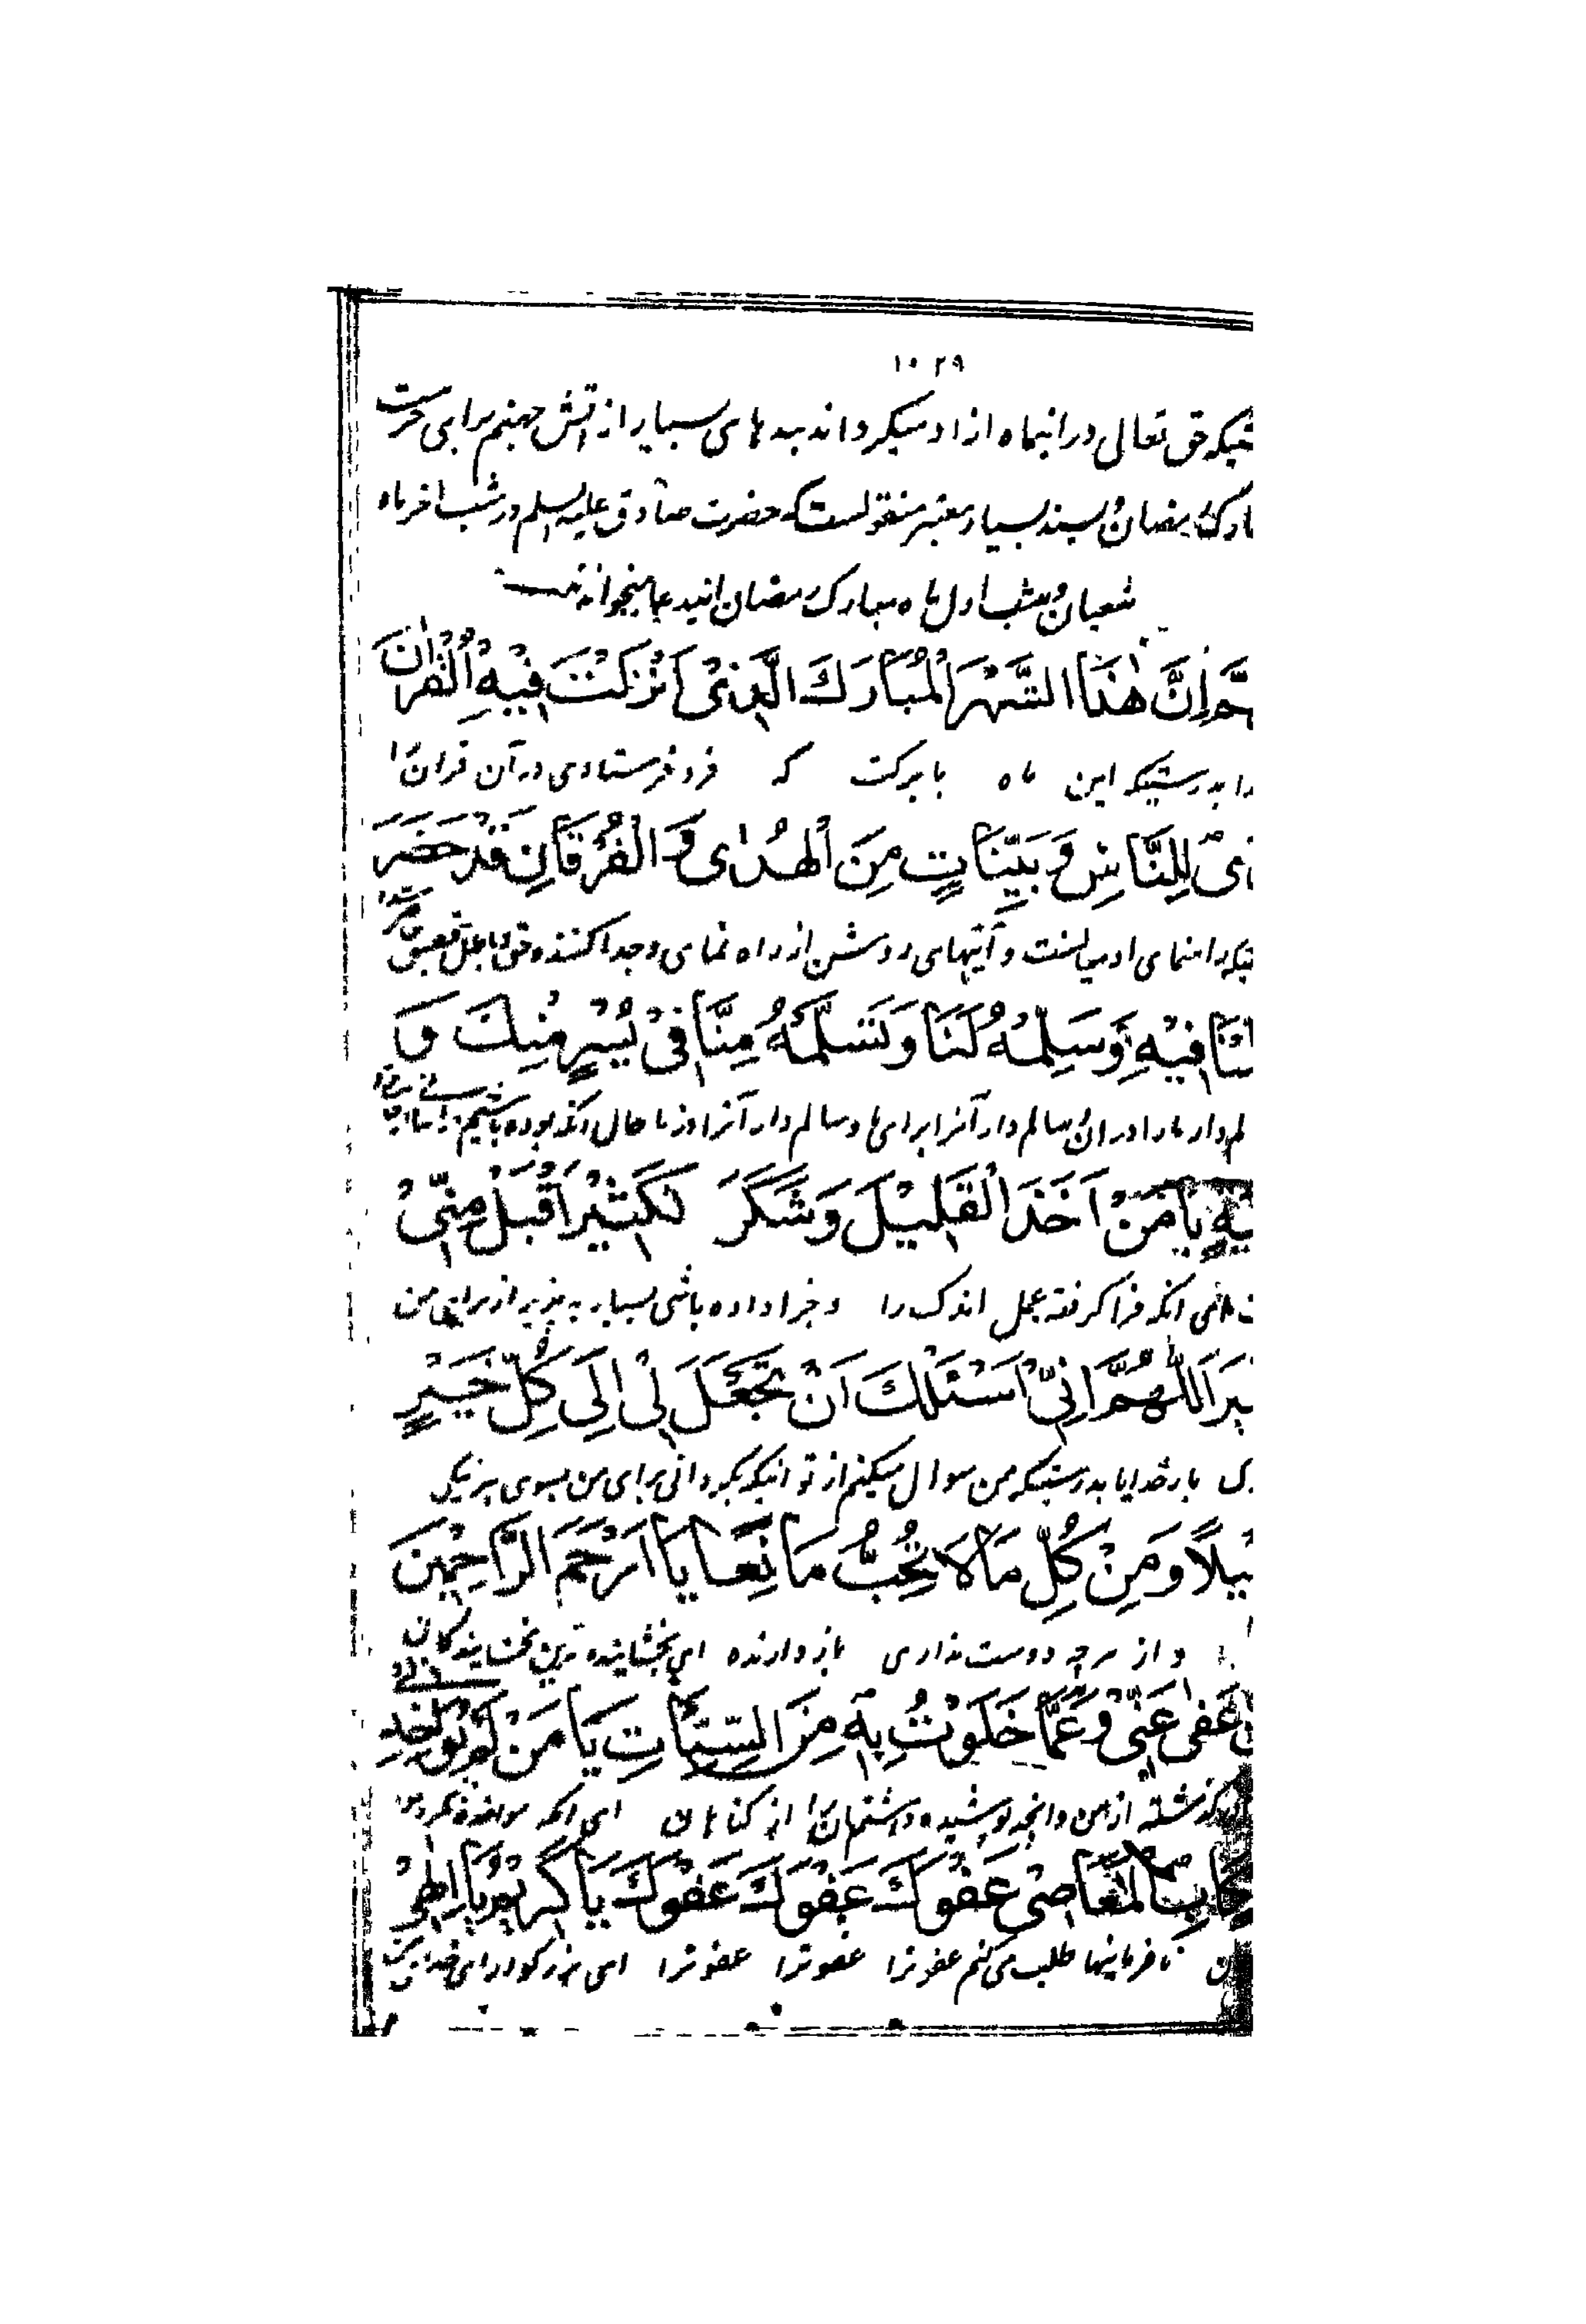 ۱۰۲۹
حق تعالی در اینماه ازاد میکرداند بنده‌های بسیار از اتش جهنم برای حرمت
رمضان و بسند بسیار معتبر منقولست که حضرت صادق علیه السلم در شب اخر ماه
شعبان و شب اول ماه مبارک رمضان ایندعا میخواندند
اِنَّ هٰذَا الشَّهْرَ الْمُبَارَكَ الَّذِیْ اَنْزَلْتَ فِیْهِ الْقُرْاٰنَ
بدرستیکه این ماه با برکت که فرو فرستادی در آن قرانرا
لِلنَّاسِ وَ بَیِّنَاتٍ مِنَ الْهُدٰی وَ الْفُرْقَانِ قَدْ حَضَرَ
راهنمای ادمیانست و آیتهای روشن از راه نمای و جدا کننده حق
فِیْهِ وَ سَلِّمْهُ لَنَا وَ تَسَلَّمْهُ مِنَّا فِیْ یُسْرٍ مِنْكَ وَ
دار ما را در ان و سالم دار آنرا برای ما و سالم دار آنرا از ما
یَا مَنْ اَخَذَ الْقَلِیْلَ وَ شَكَرَ لكَثِیْرَ اقْبَلْ مِنِّیْ
انکه فرا کرفته عمل اندک را و جزا داده باشی بسیار به پذیر از برای من
اَللّٰهُمَّ اِنِّیْ اَسْئَلُكَ اَنْ تَجْعَلَ لِیْ اِلٰی كُلِّ خَیْرٍ
بار خدایا بدرستیکه من سوال میکنم از تو اینکه بکردانی برای من بسوی هر نیکی
وَ مِنْ كُلِّ مَا لَا تُحِبُّ مَانِعًا یَا اَرْحَمَ الرَّاحِمِیْنَ
و از هر چه دوست نداری باز دارنده ای بخشاینده ترین بخشایندکان
عَفٰی عَنِّیْ وَ عَمَّا خَلَوْتُ بِهٖ مِنَ السَّیِّئَاتِ یَا مَنْ لَمْ یُؤَاخِذْ
کذشته از من و انچه پوشیده داشتم انرا از کناهان ای انکه مواخذه نکرد
الْمَعَاصِیْ عَفْوَكَ عَفْوَكَ عَفْوَكَ یَا كَرِیْمُ یَا اِلٰهِیْ
نافرمانیها طلب می کنم عفو ترا عفو ترا عفو ترا ای بزرکوار ای خدای من